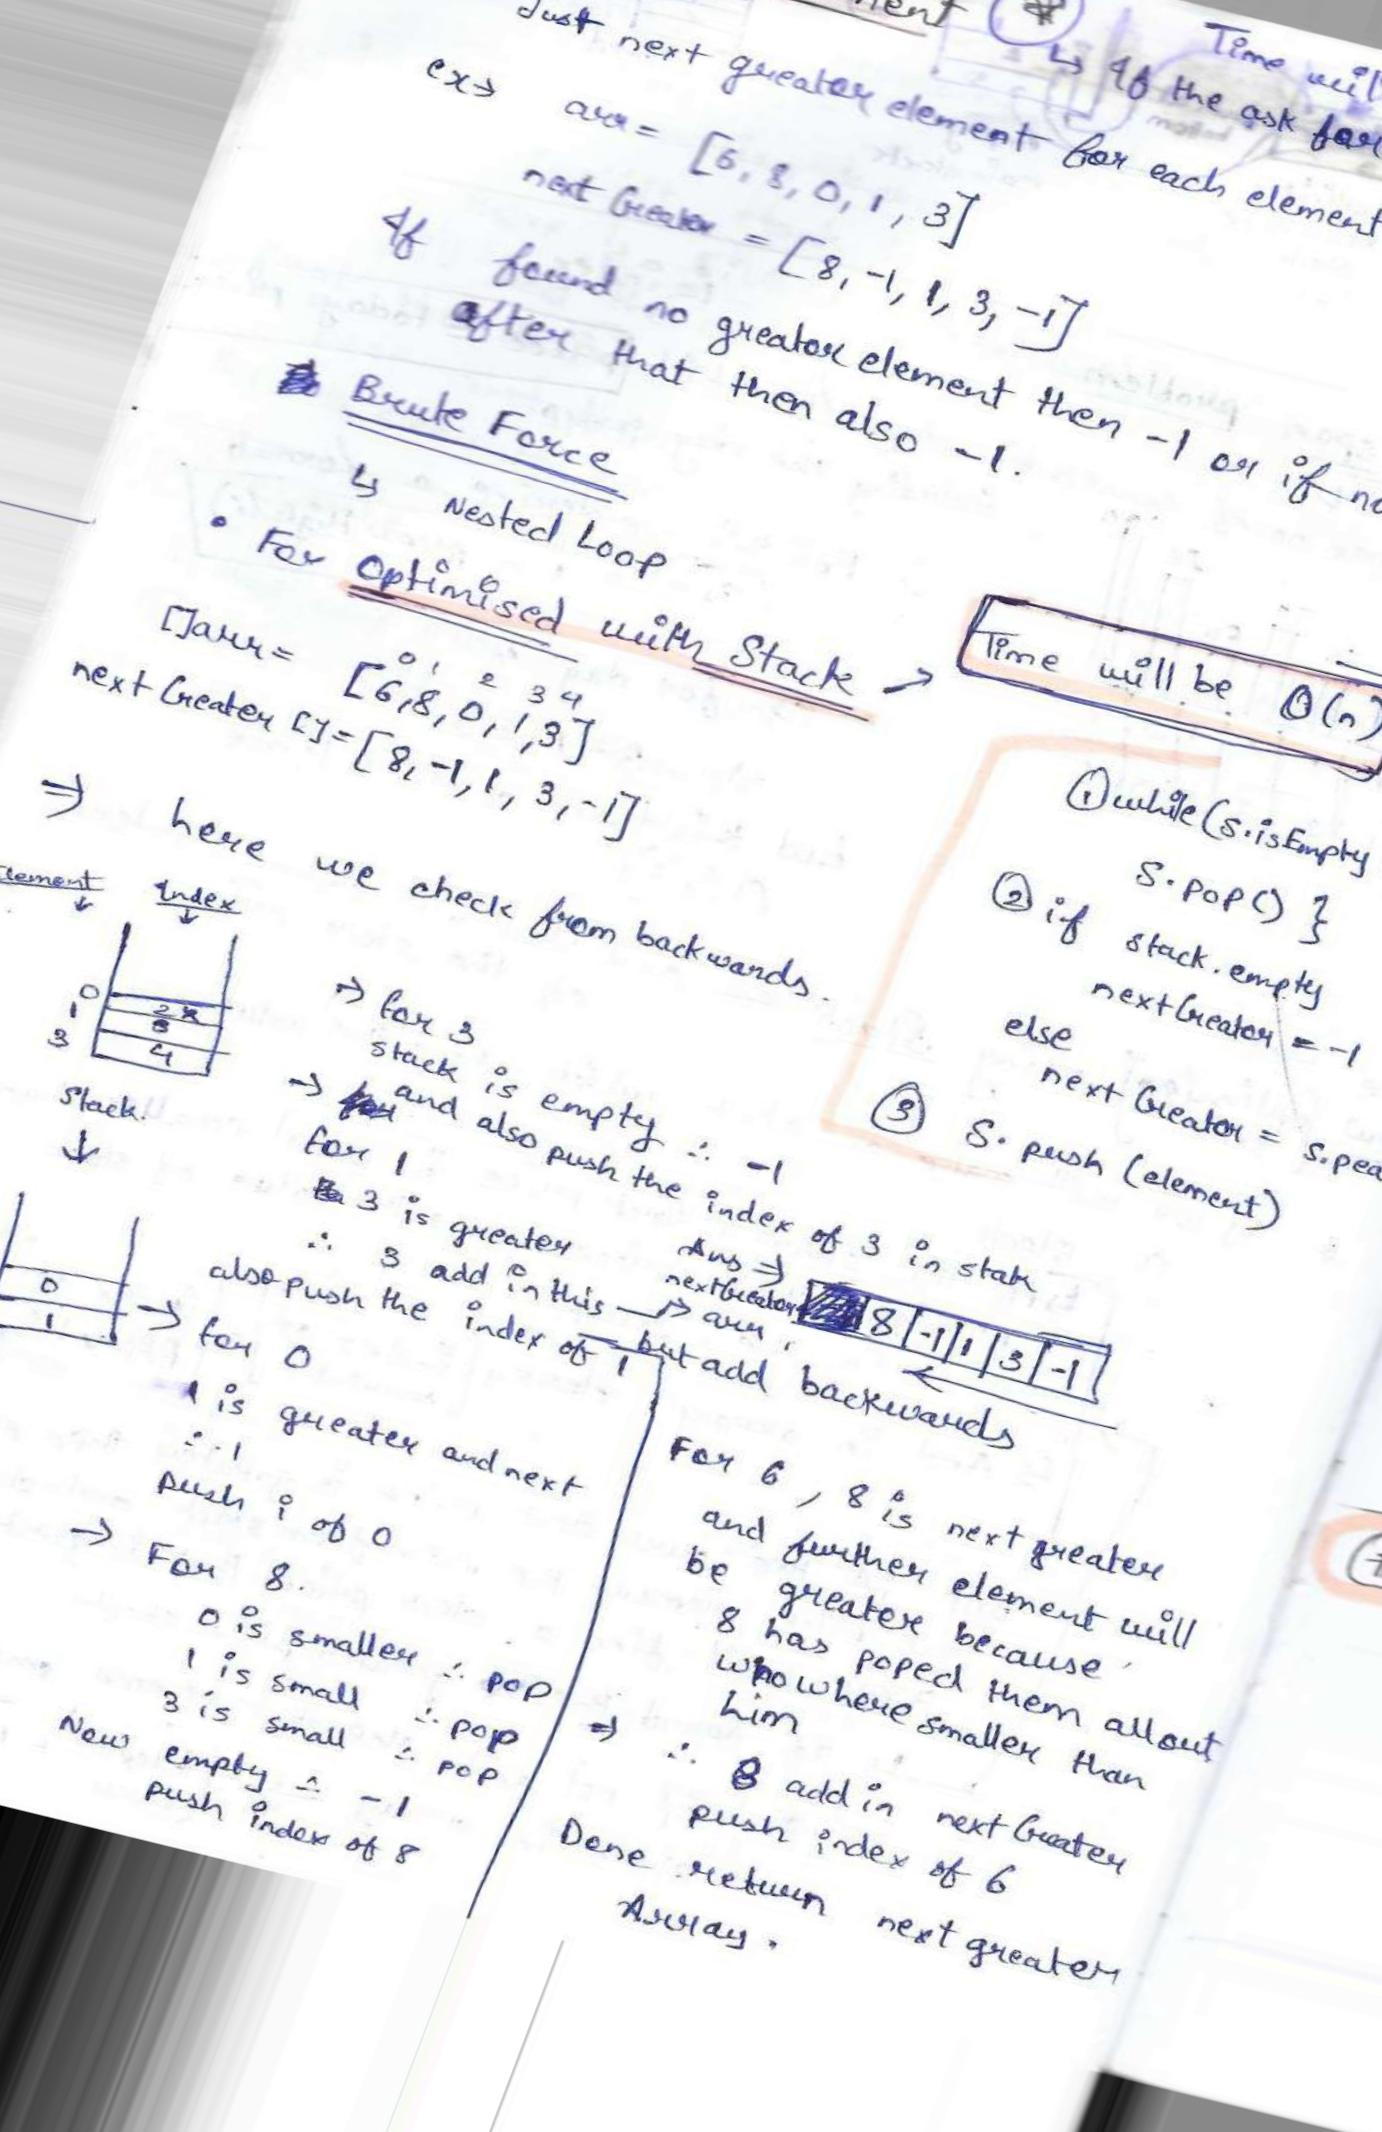 Time will
Just next greater element for each element
↳ If the ask for
ex→ arr = [6, 8, 0, 1, 3]
next Greater = [8, -1, 1, 3, -1]
If found no greater element then -1 or if no
after that then also -1.
Brute Force
↳ Nested Loop
• For Optimised with Stack → Time will be O(n)
[]arr = [6,8,0,1,3]
0 1 2 3 4
next Greater []= [8,-1,1,3,-1]
⇒ here we check from backwards.
① while(s.isEmpty
s.pop() }
② if stack.empty
nextGreater = -1
else
next Greater = s.pea
③ S.push (element)
Element Index
0 2
1 3
3 4
Stack.
0
1
→ for 3
stack is empty ∴ -1
and also push the index of 3 in stak
→ for 1
3 is greater
∴ 3 add in this → arr,
but add backwards
also push the index of 1
Ans ⇒
nextGreater 8 | -1 | 1 | 3 | -1
→ for 0
1 is greater and next
∴ 1
push i of 0
→ For 8.
0 is smaller ∴ pop
1 is small ∴ pop
3 is small ∴ pop
Now empty ∴ -1
push index of 8
For 6, 8 is next greater
and further element will
be greater because
8 has poped them all out
who where smaller than
him
⇒ ∴ 8 add in next Greater
push index of 6
Done return next greater
Array.